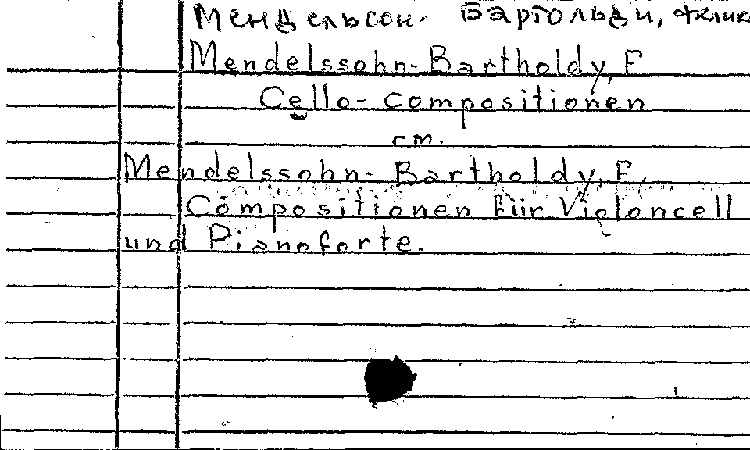 Мендельсон-Бартольди, Феликс
Mendelssohn-Bartholdy, F
Cello-compositionen
см.
Mendelssohn-Bartholdy, F.
Compositionen für Violoncell
und Pianoforte.